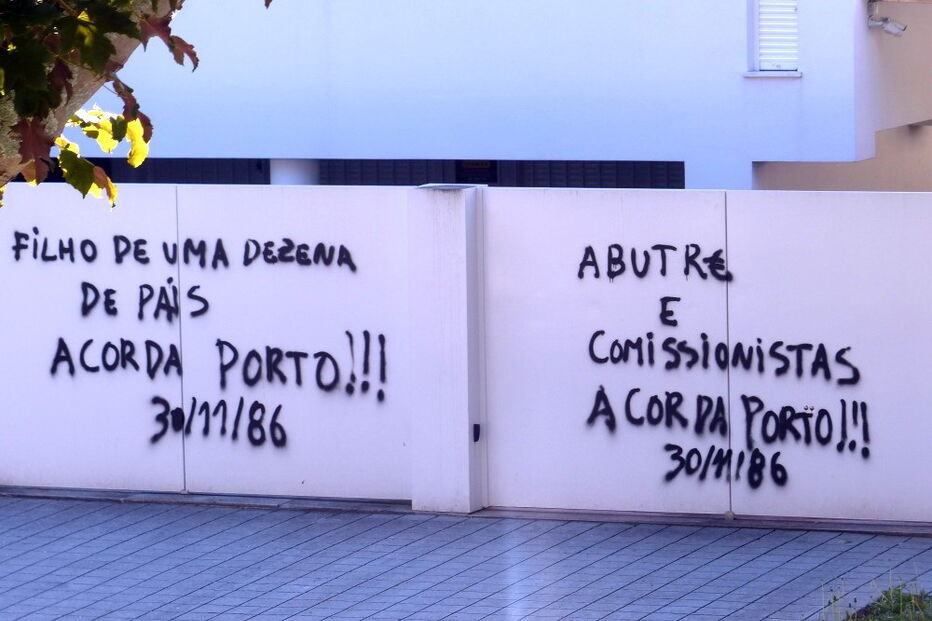 FILHO DE UMA DEZENA
DE PAIS
ACORDA PORTO!!!
30/11/86
ABUTR€
E
COMISSIONISTAS
ACORDA PORTO!!!
30/11/86